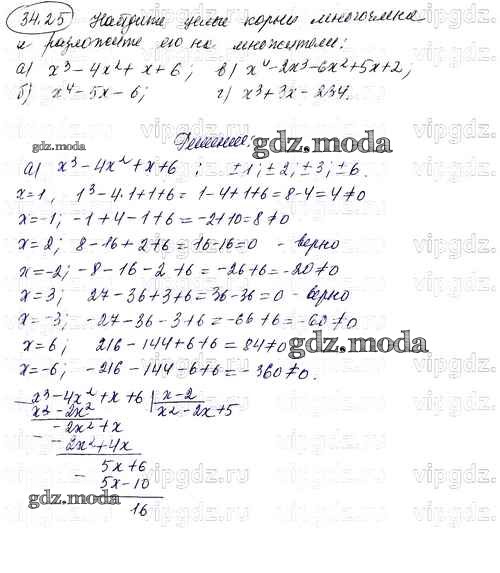 34.25 Найдите целые корни многочлена
и разложите его на множители:
а) x³ - 4x² + x + 6; в) x⁴ - 2x³ - 6x² + 5x + 2;
б) x⁴ - 5x - 6; г) x³ + 3x - 234.
Решение:
gdz.moda
а) x³ - 4x² + x + 6 ; ±1; ±2; ±3; ±6.
x=1, 1³ - 4·1 + 1 + 6 = 1 - 4 + 1 + 6 = 8 - 4 = 4 ≠ 0
x=-1; -1 + 4 - 1 + 6 = -2 + 10 = 8 ≠ 0
x=2; 8 - 16 + 2 + 6 = 16 - 16 = 0 - верно
x=-2; -8 - 16 - 2 + 6 = -26 + 6 = -20 ≠ 0
x=3; 27 - 36 + 3 + 6 = 36 - 36 = 0 - верно
x=-3; -27 - 36 - 3 + 6 = -66 + 6 = -60 ≠ 0
x=6; 216 - 144 + 6 + 6 = 84 ≠ 0
gdz.moda
x=-6; -216 - 144 - 6 + 6 = -360 ≠ 0.
x³ - 4x² + x + 6 | x - 2
x³ - 2x² x² - 2x + 5
-2x² + x
- 2x² + 4x
5x + 6
5x - 10
gdz.moda
16
gdz.moda
vipgdz.ru